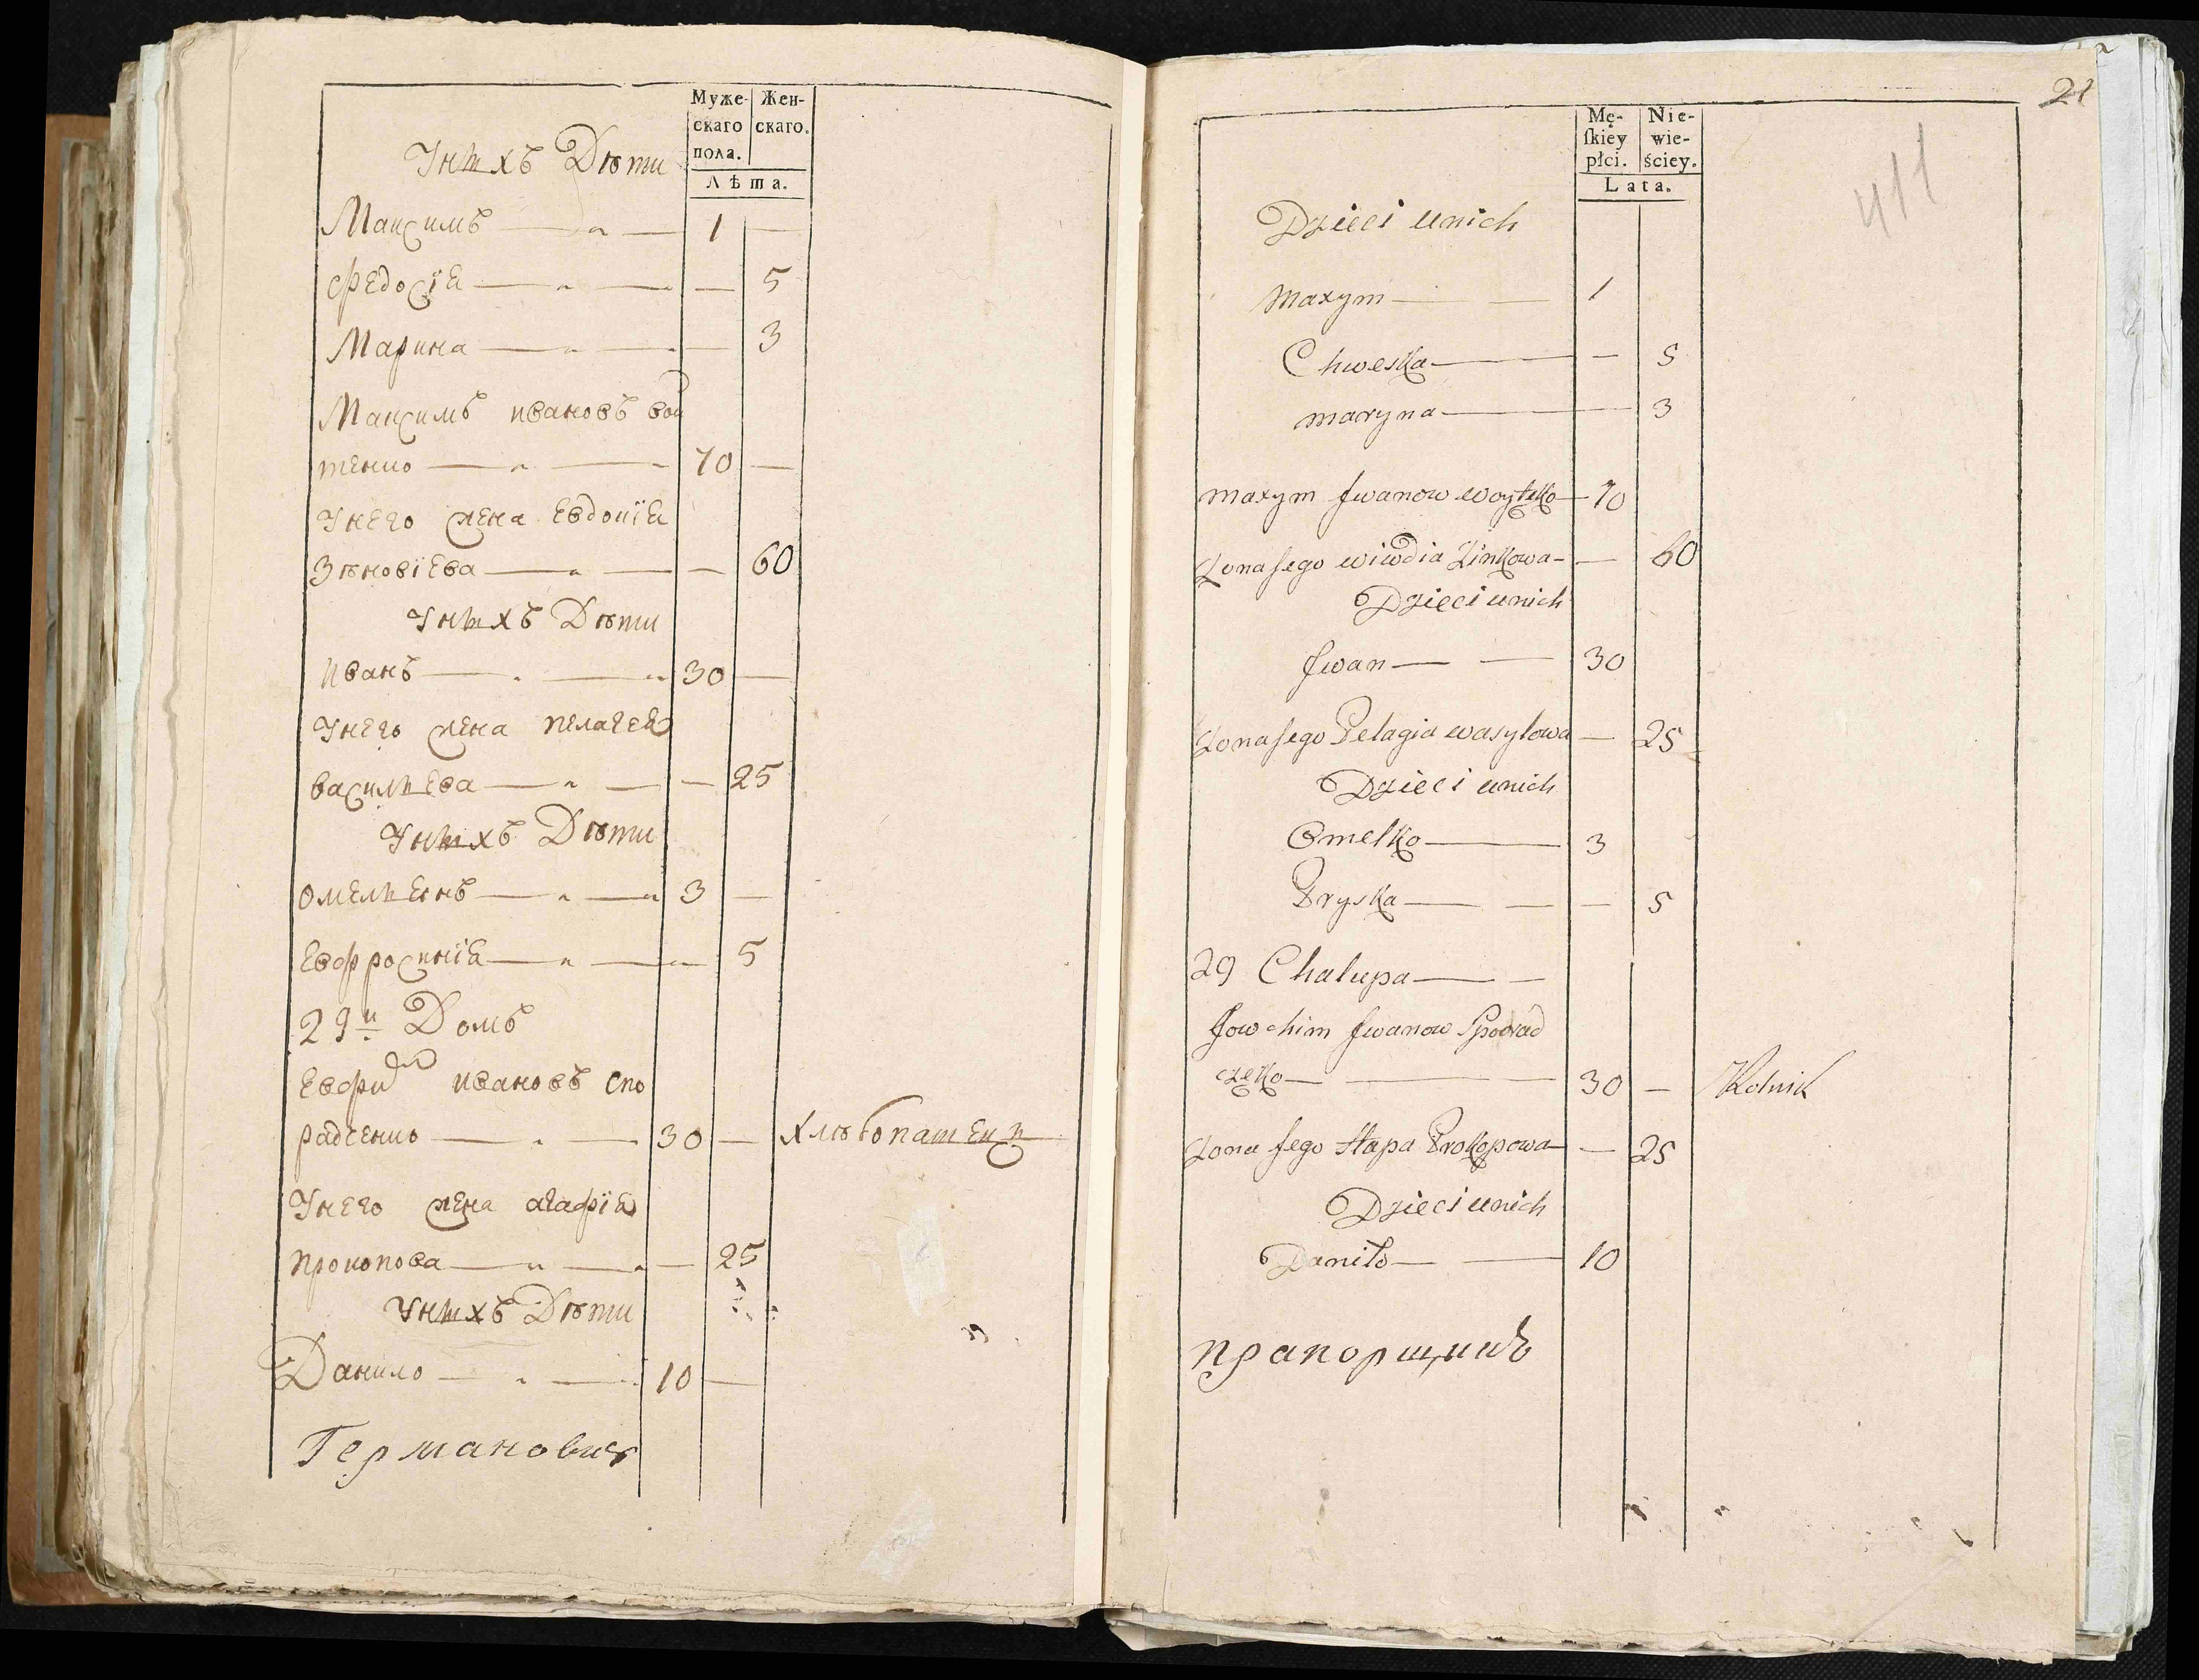 Муже- Жен-
скаго скаго.
пола.
Лѣта.
У нихъ Дѣти
Максимъ 1 —
Федосіѧ — 5
Марина — 3
Максимъ ивановъ вой
тенко 70 —
У него жена Евдокіѧ
Зѣновіева — 60
У нихъ Дѣти
иванъ 30 —
У него жена пелагеѧ
васильева — 25
У нихъ Дѣти
омельѧнъ 3 —
Евфросиніѧ — 5
29й Домъ
Евфим ивановъ спо
радченко 30 — хлѣбопашецъ
У него жена агафіѧ
прокопова — 25
У нихъ Дѣти
Данило 10 —
Германович
21
411
Mę- Nie-
skiey wie-
płci. ściey.
Lata.
Dzieci u nich
Maxym 1
Chweska — 5
maryna — 3
maxym Jwanow woytęko 70
Zona Jego wiwdia Zinkowa — 60
Dzieci u nich
Jwan 30
Zona Jego Pelagia wasylowa — 25
Dzieci u nich
Omelko 3
Pryska — 5
29 Chalupa
Jowchim Jwanow Sporad
częko 30 — Rolnik
Zona Jego Hapa Prokopowa — 25
Dzieci u nich
Daniło 10
прапорщикъ